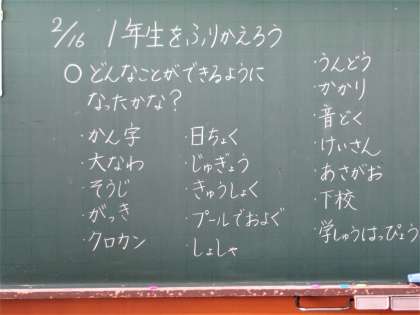 2/16 1年生をふりかえろう
○どんなことができるように
なったかな？
・かん字
・大なわ
・そうじ
・がっき
・クロカン
・日ちょく
・じゅぎょう
・きゅうしょく
・プールでおよぐ
・しょしゃ
・うんどう
・かかり
・音どく
・けいさん
・あさがお
・下校
・学しゅうはっぴょう